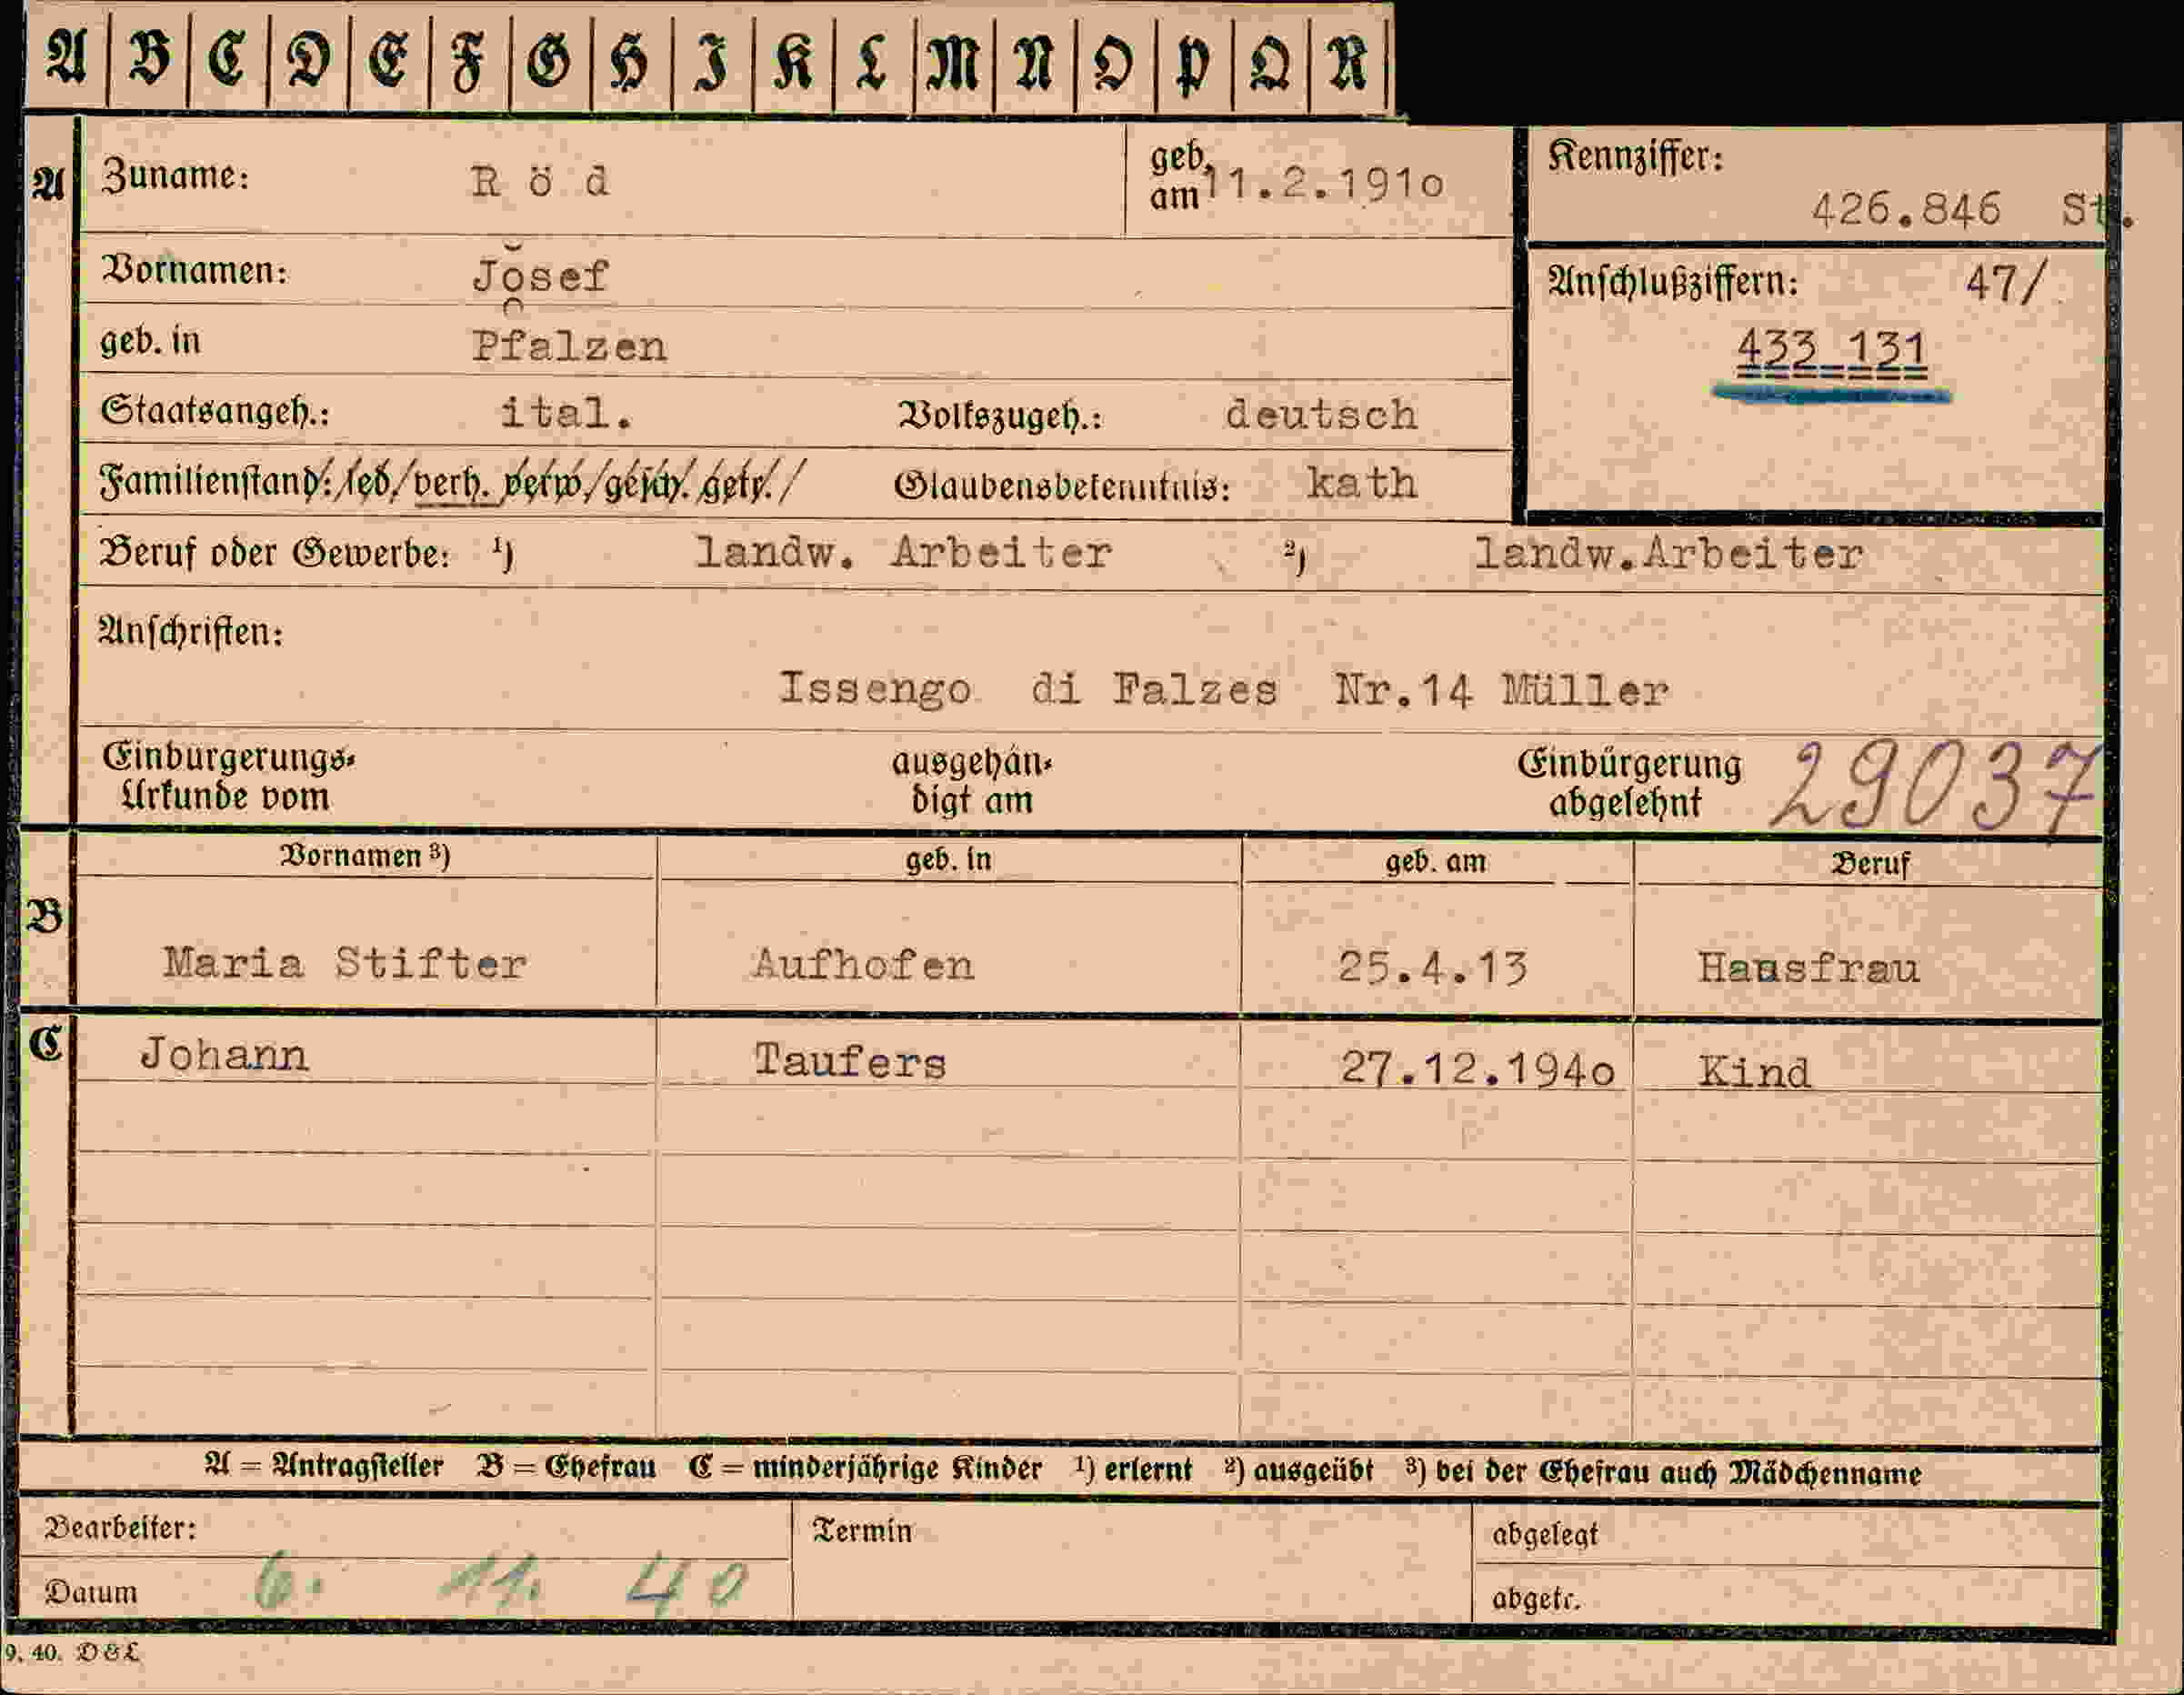 A B C D E F G H I K L M N O P Q R
A Zuname: Röd geb. am 11.2.191o Kennziffer: 426.846 St.
Vornamen: Josef Anschlußziffern: 47/
433 131
geb. in Pfalzen
Staatsangeh.: ital. Volkszugeh.: deutsch
Familienstand: led. verh. verw. gesch. getr. Glaubensbekenntnis: kath
Beruf oder Gewerbe: 1) landw. Arbeiter 2) landw.Arbeiter
Anschriften:
Issengo di Falzes Nr.14 Müller
Einbürgerungs-
Urkunde vom
ausgehän-
digt am
Einbürgerung
abgelehnt
29037
Vornamen 3) geb. in geb. am Beruf
B
Maria Stifter Aufhofen 25.4.13 Hausfrau
C Johann Taufers 27.12.194o Kind
A = Antragsteller B = Ehefrau C = minderjährige Kinder 1) erlernt 2) ausgeübt 3) bei der Ehefrau auch Mädchenname
Bearbeiter: Termin abgelegt
Datum 6. 11. 40 abgetr.
9. 40. D&L